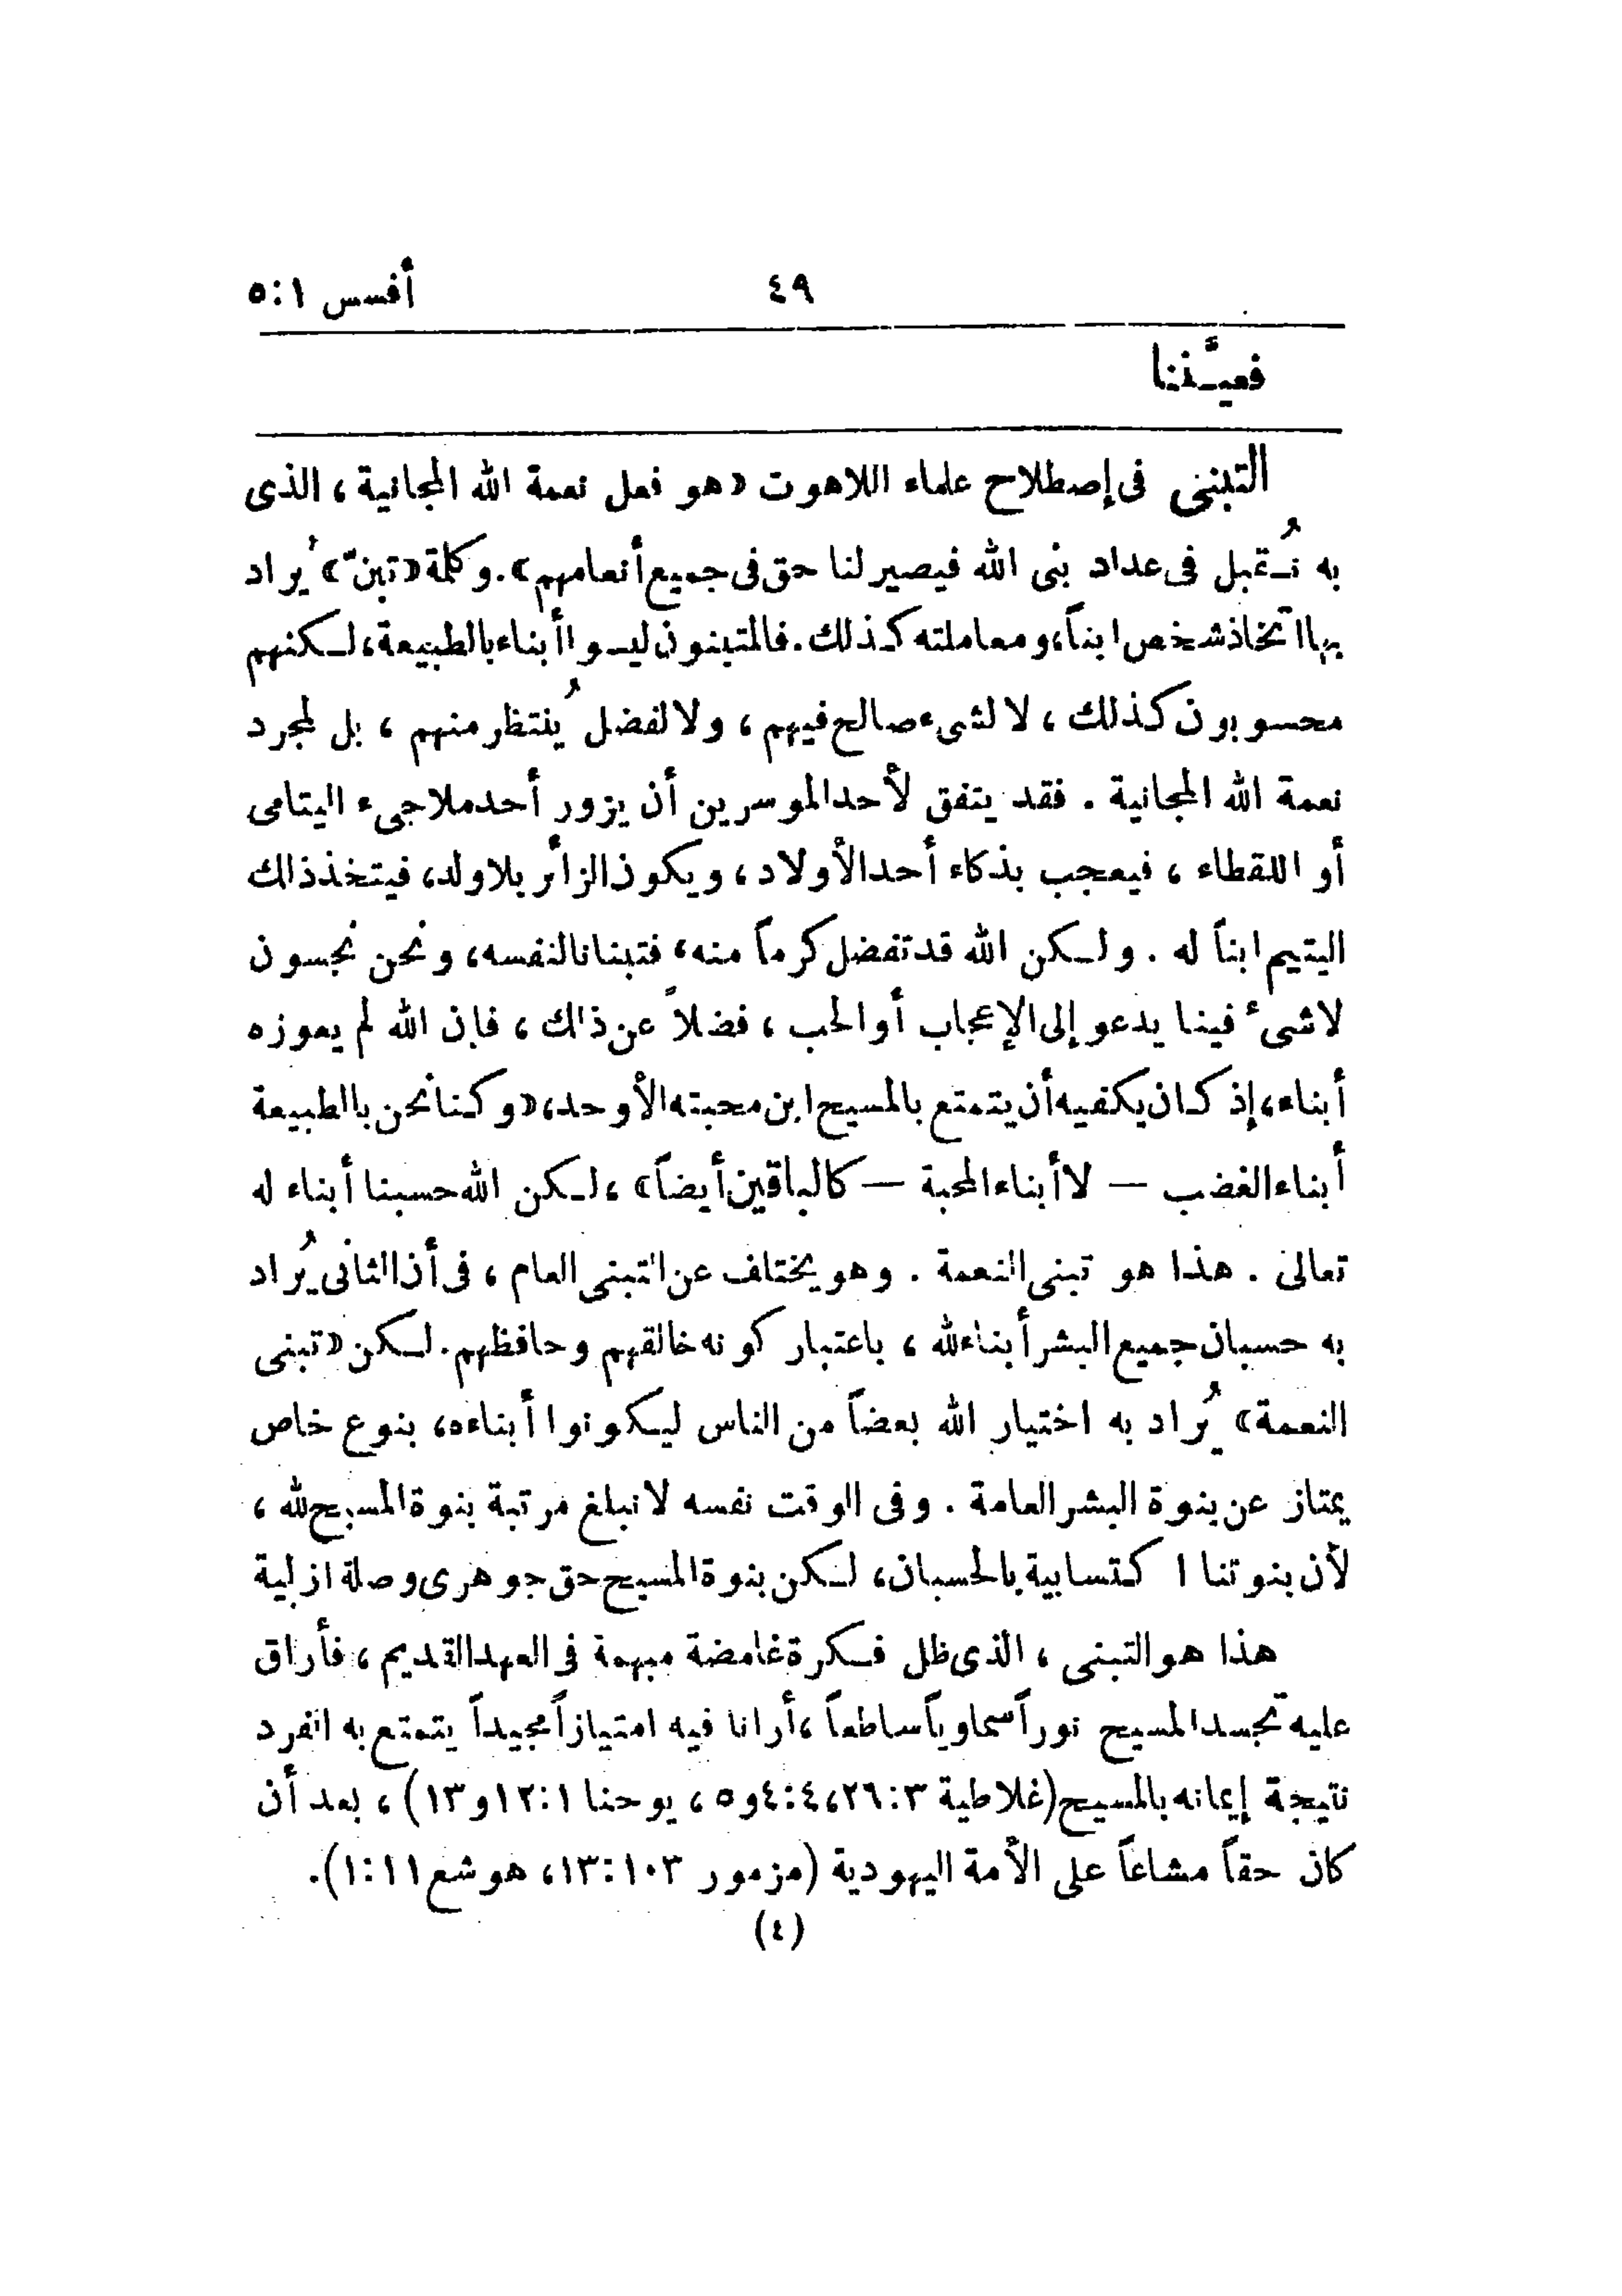 أفسس ١:٥ ٤٩
فعيَّننا
التبنى فى إصطلاح علماء اللاهوت «هو فعل نعمة الله المجانية، الذى
به نُقبل فى عداد بنى الله فيصير لنا حق فى جميع أنعامهم». وكلمة «تبنّ» يُراد
بها اتخاذ شخص ابناً، ومعاملته كذلك. فالمتبنون ليسوا أبناء بالطبيعة، لكنهم
محسوبون كذلك، لا لشىء صالح فيهم، ولا لفضل يُنتظر منهم، بل لمجرد
نعمة الله المجانية. فقد يتفق لأحد الموسرين أن يزور أحد ملاجىء اليتامى
أو اللقطاء، فيعجب بذكاء أحد الأولاد، ويكون الزائر بلا ولد، فيتخذ ذلك
اليتيم ابناً له. ولكن الله قد تفضل كرماً منه، فتبنانا لنفسه، ونحن نجسون
لا شىء فينا يدعو إلى الإعجاب أو الحب، فضلاً عن ذلك، فإن الله لم يعوزه
أبناء، إذ كان يكفيه أن يتمتع بالمسيح ابن محبته الأوحد، «وكنا نحن بالطبيعة
أبناء الغضب — لا أبناء المحبة — كالباقين أيضاً»، لكن الله حسبنا أبناء له
تعالى. هذا هو تبنى النعمة. وهو يختلف عن التبنى العام، فى أن الثانى يُراد
به حسبان جميع البشر أبناء لله، باعتبار كونه خالقهم وحافظهم. لكن «تبنى
النعمة» يُراد به اختيار الله بعضاً من الناس ليكونوا أبناءه، بنوع خاص
يمتاز عن بنوة البشر العامة. وفى الوقت نفسه لا نبلغ مرتبة بنوة المسيح لله،
لأن بنوتنا اكتسابية بالحسبان، لكن بنوة المسيح حق جوهرى وصلة ازلية
هذا هو التبنى، الذى ظل فكرة غامضة مبهمة فى العهد القديم، فأراق
عليه تجسد المسيح نوراً سماوياً ساطعاً، أرانا فيه امتيازاً مجيداً يتمتع به الفرد
نتيجة إيمانه بالمسيح (غلاطية ٣:٢٦، ٤:٤ و٥، يوحنا ١:١٢ و١٣)، بعد أن
كان حقاً مشاعاً على الأمة اليهودية (مزمور ١٠٣:١٣، هوشع ١١:١).
(٤)